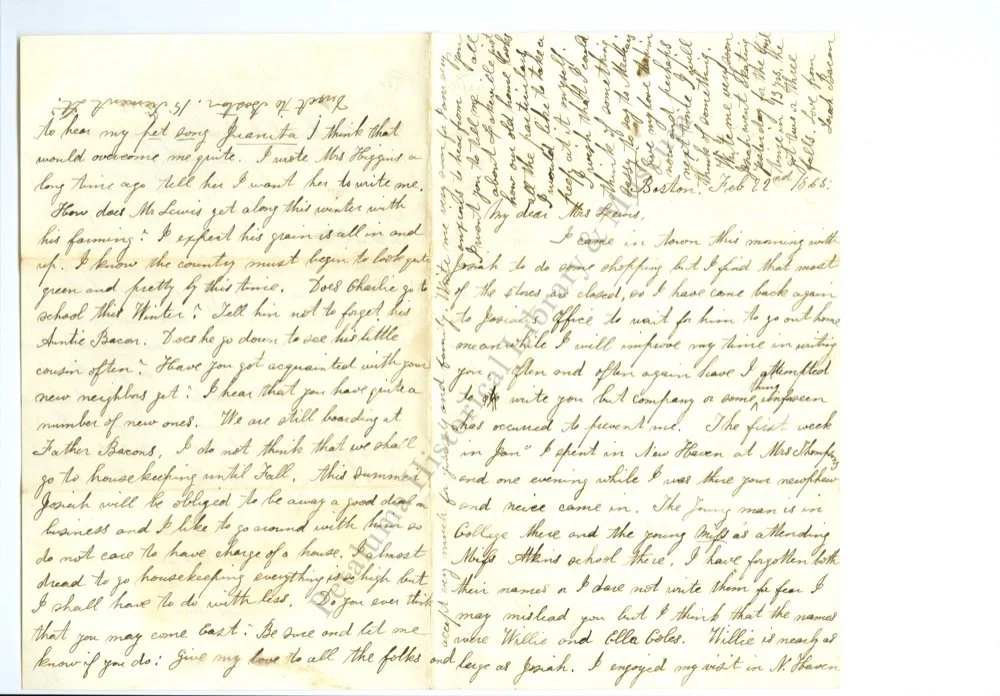 Boston, Feb 22nd 1865.
My dear Mrs Lewis,
I came in town this morning with
Josiah to do some shopping but I find that most
of the stores are closed, so I have come back again
to Josiah's Office to wait for him to go out home
meanwhile I will improve my time in writing
you. Often and often again have I attempted
to write you but company or some thing unforseen
has occured to prevent me. The first week
in Jan" I spent in New Haven at Mrs Thompsons
and one evening while I was there your newphew
and neice came in. The Young man is in
College there and the young Miss is attending
Miss Atkins school there. I have forgotten both
their names or I dare not write them for fear I
may mislead you but I think that the names
were Willie and Ella Coles. Willie is nearly as
large as Josiah. I enjoyed my visit in N. Haven
to hear my pet song Juanita I think that
would overcome me quite. I wrote Mrs Higgins a
long time ago tell her I want her to write me.
How does Mr Lewis get along this winter with
his farming? I expect his grain is all in and
up. I know the country must begin to look quite
green and pretty by this time. Does Charlie go to
school this Winter? Tell him not to forget his
Auntie Bacon. Does he go down to see his little
cousin often? Have you got acquainted with your
new neighbors yet? I hear that you have quite a
number of new ones. We are still boarding at
Father Bacons, I do not think that we shall
go to housekeeping until Fall. this summer
Josiah will be obliged to be away a good deal on
business and I like to go around with him so
do not care to have charge of a house. I almost
dread to go housekeeping everything is so high but
I shall have to do with less. Do you ever think
that you may come East? Be sure and let me
know if you do? Give my love to all the folks and
accept very much for yourself and family. Write me very soon as I am very
anxious to hear from you
I want you to tell me all
about Lakeville just
how our old house looks
all the particulars
I would like to take a
peep at it myself.
I wish that I could
think of something
sassy to say to Mr Lewis
Give my love to him
now and perhaps
next time I will
think of something.
Write me very soon
Josiah went skating
yesterday for the first
time in 13 yrs, he
got thus a three
falls
Love from
Sarah Bacon
Direct to Boston. 15 Tremont St.
Petaluma Historical Library & Museum